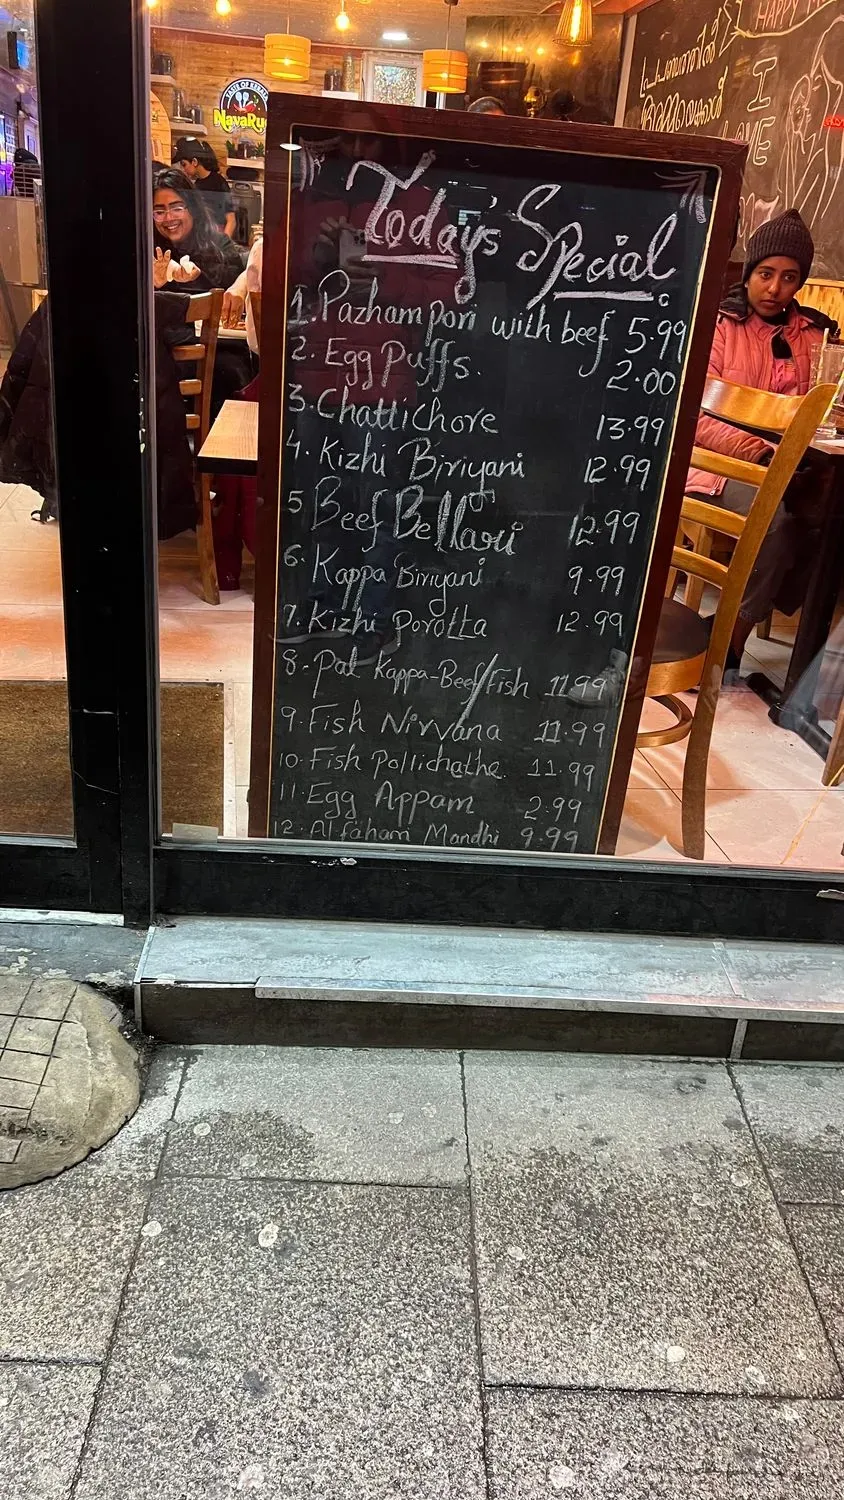 TASTE OF KERALA
NavaRu
HAPPY M
പ്രണയത്തിന്
I
LOVE
Today's Special
1. Pazham pori with beef 5.99
2. Egg Puffs. 2.00
3. Chattichore 13.99
4. Kizhi Biriyani 12.99
5 Beef Bellari 12.99
6. Kappa Biriyani 9.99
7. Kizhi Porotta 12.99
8- Pal Kappa-Beef/Fish 11.99
9. Fish Nirvana 11.99
10. Fish Pollichathe. 11.99
11. Egg Appam 2.99
12. Al faham Mandhi 9.99